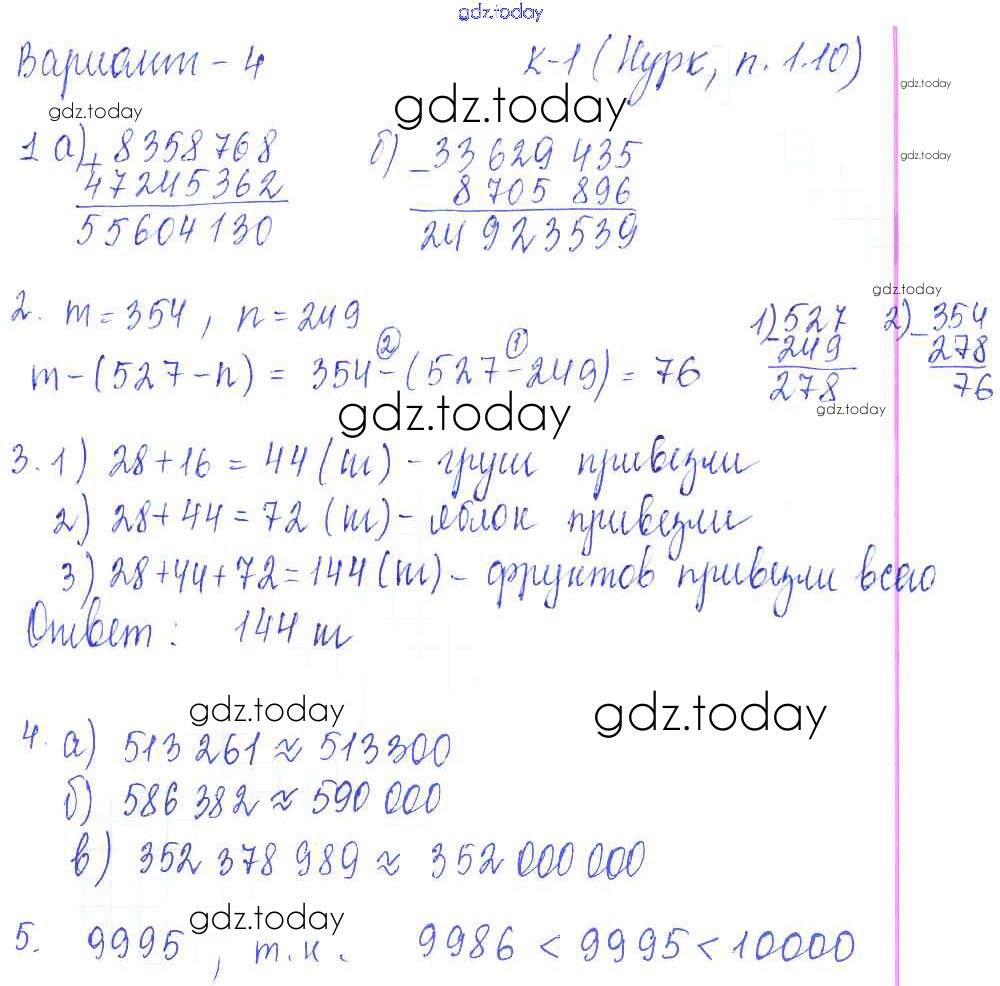 gdz.today
Вариант - 4 К-1 (Нурк, п. 1.10)
gdz.today
gdz.today
gdz.today
gdz.today
1 а) + 8358768 б) - 33 629 435
47245362 8 705 896
55604130 24 923539
gdz.today
2. m = 354, n = 249 1) - 527 2) - 354
249 278
m - (527 - n) = 354 - (527 - 249) = 76 278 76
② ①
gdz.today
gdz.today
3. 1) 28 + 16 = 44 (т) - груш привезли
2) 28 + 44 = 72 (т) - яблок привезли
3) 28 + 44 + 72 = 144 (т) - фруктов привезли всего
Ответ: 144 т
gdz.today
gdz.today
4. а) 513 261 ≈ 513300
б) 586 382 ≈ 590 000
в) 352 378 989 ≈ 352 000 000
gdz.today
5. 9995, т.к. 9986 < 9995 < 10000